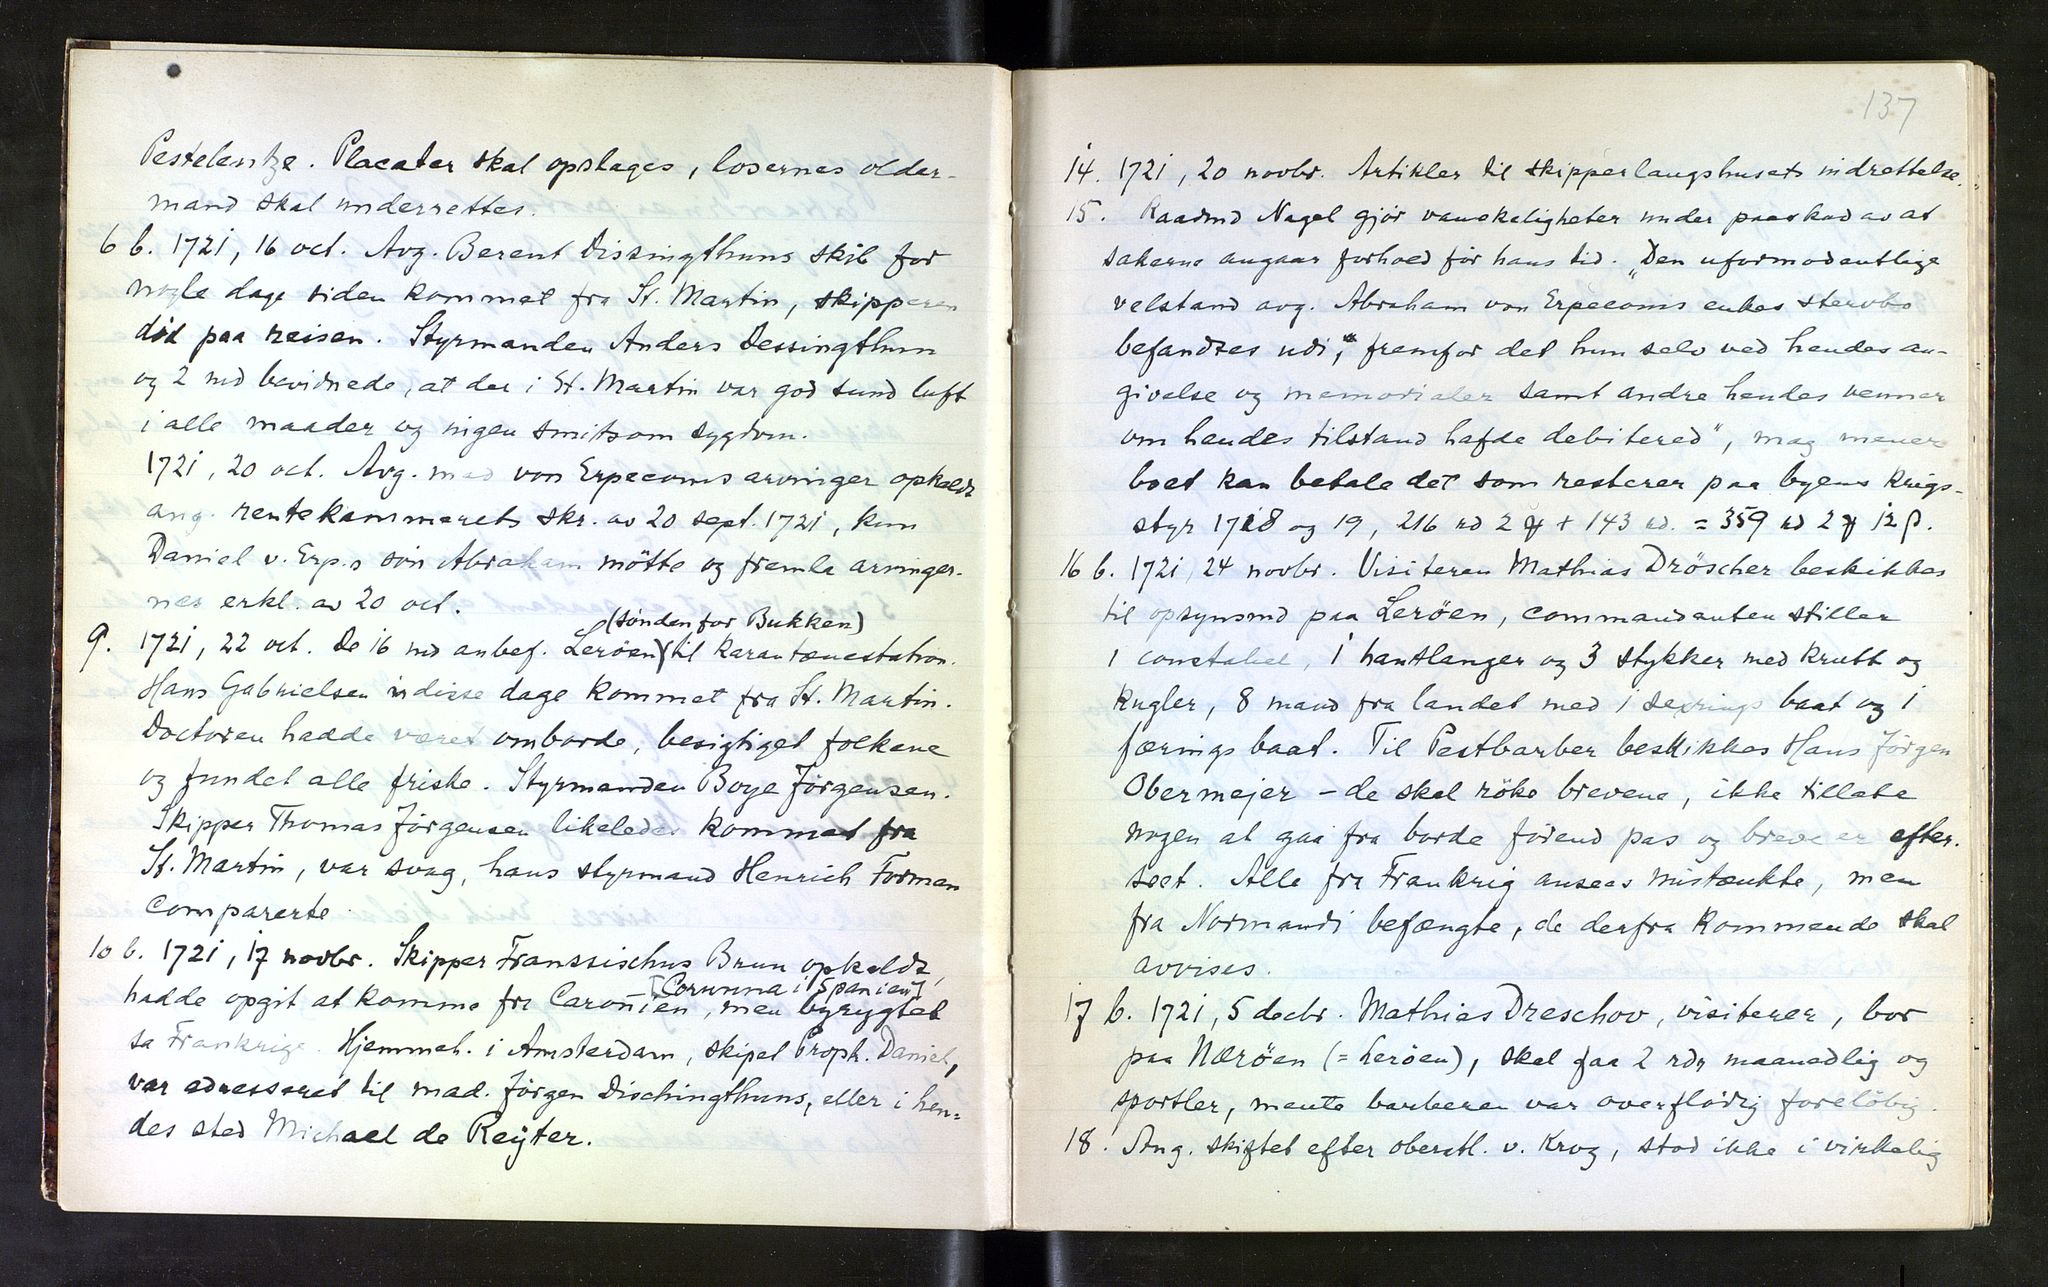 Pestelentze. Placater skal opslages, losernes older-
mand skal underrettes.
6 b. 1721, 16 oct. Avg. Berent Dissingthuns skib for
nogle dage siden kommet fra St. Martin, skipperen
död paa reisen. Styrmanden Anders Dessingthun
og 2 md bevidnede, at der i St. Martin var god sund luft
i alle maader og ingen smitsom sygdom.
1721, 20 oct. Avg. mad von Erpecoms arvinger opkaldt
ang. rentekammerets skr. av 20 sept. 1721, kun
Daniel v. Erp.s sön Abraham mötte og framla arvinger-
nes erkl. av 20 oct.
(sönden for Bukken)
9. 1721, 22 oct. De 16 md anbef. Leröen til karantænestation.
Hans Gabrielsen i disse dage kommet fra St. Martin.
Doctoren hadde været omborde, besigtiget folkene
og fundet alle friske. Styrmanden Boye Jörgensen.
Skipper Thomas Jörgensen likeledes kommet fra
St. Martin, var svag, hans styrmand Henrich Forman
comparerte
10 b. 1721, 17 novbr. Skipper Franssischus Brun opkaldt,
[Corunna i Spanien]
hadde opgit at komme fra Caronien, men
sa Frankrige. Hjemmeh. i Amsterdam, skipet Proph. Daniel,
var adresseret til mad. Jörgen Dischingthuns, eller i hen-
des sted Michael de Reÿter.
137
14. 1721, 20 novbr. Artikler til skipperlaugshusets indrettelse.
15. Raadmd Nagel gjör vanskeligheter under paaskud av at
sakerne angaar forhold för hans tid. "Den uformodentlige
velstand avg. Abraham von Erpecoms enkes stervbo
befandtes udi," fremfor det hun selv ved hendes an-
givelse og memorialer samt andre hendes venner
om hendes tilstand hafde debitered", mag. mener
boet kan betale det som resterer paa byens krigs-
styr 1718 og 19, 216 rd 2 ꝥ + 143 rd. = 359 rd 2 ꝥ 12 β.
16 b. 1721, 24 novbr. Visiteren Mathias Dröscher beskikkes
til opsynsmd paa Leröen, commandanten stiller
1 constabel, 1 hantlanger og 3 stykker med krutt og
kugler, 8 mand fra landet med 1 sexrings baat og 1
færings baat. Til Pestbarber beskikkes Hans Jörgen
Obermejer - de skal röke brevene, ikke tillate
nogen at gaa fra borde förend pas og breve er efter-
seet. Alle fra Frankrig ansees mistænkte, men
fra Normandi befængte, de derfra kommende skal
avvises.
17 b. 1721, 5 decbr. Mathias Dreschov, visiterer, bor
paa Næröen (= Leröen), skal faa 2 rdr maanedlig og
sportler, mente barberen var overflödig foreløbig.
18. Ang. skiftet efter oberstl. v. Krog, stod ikke i virkelig